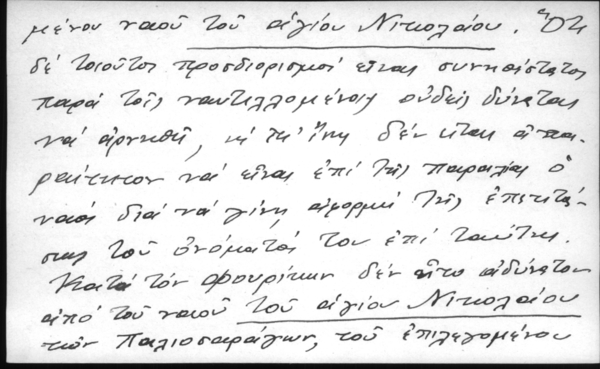 μένου ναοῦ τοῦ ἁγίου Νικολάου. Ὅτι
δέ τοιοῦτοι προσδιορισμοί εἶναι συνηθέστατοι
παρά τοῖς ναυτιλλομένοις οὐδείς δύναται
νά ἀρνηθῇ, δέν ἦται ἀπα-
ραίτητον νά εἶναι ἐπί τῆς παραλίας ὁ
ναός διά νά γίνῃ ἀφορμή τῆς ἐπεκτά-
σεως τοῦ ὀνόματός του ἐπί ταύτης.
Κατά τόν Φουρίκην δέν ἦτο ἀδύνατον
ἀπό τοῦ ναοῦ τοῦ ἁγίου Νικολάου
τῶν Παλιοσαράγων, τοῦ ἐπιλεγομένου